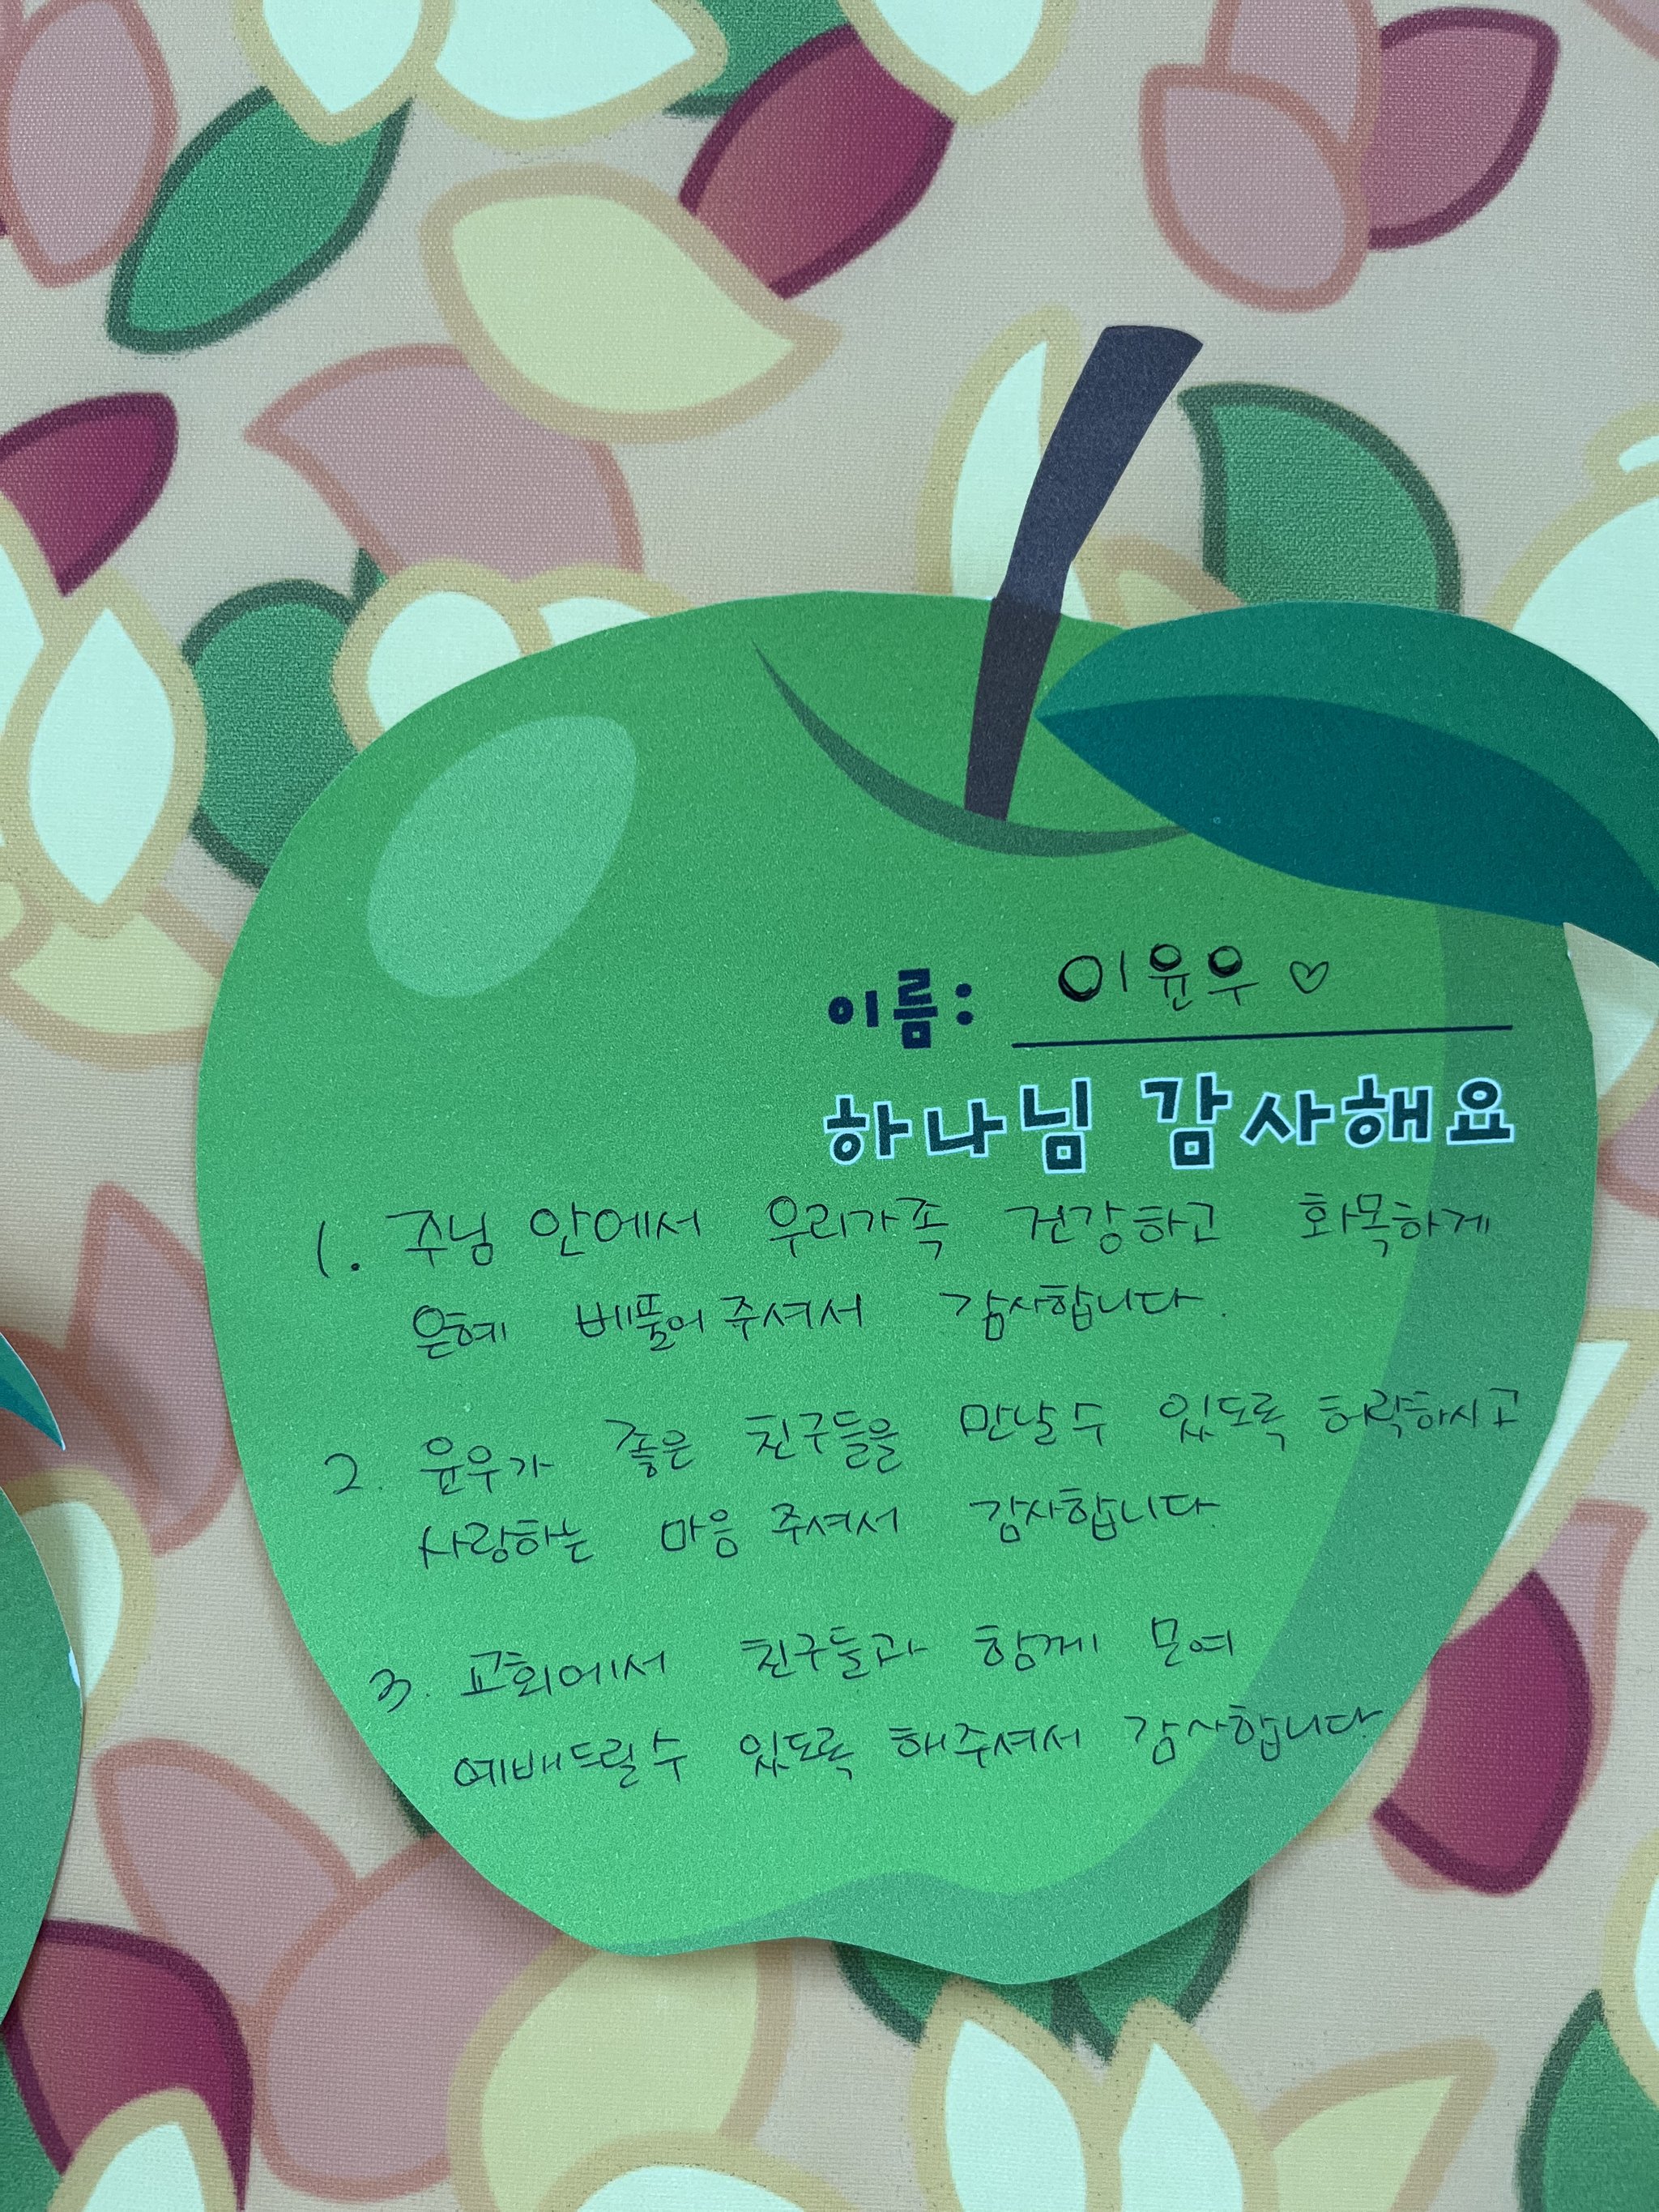 이름: 이윤우 ♡
하나님 감사해요
1. 주님 안에서 우리가족 건강하고 화목하게
은혜 베풀어 주셔서 감사합니다.
2. 윤우가 좋은 친구들을 만날수 있도록 허락하시고
사랑하는 마음 주셔서 감사합니다.
3. 교회에서 친구들과 함께 모여
예배드릴수 있도록 해주셔서 감사합니다